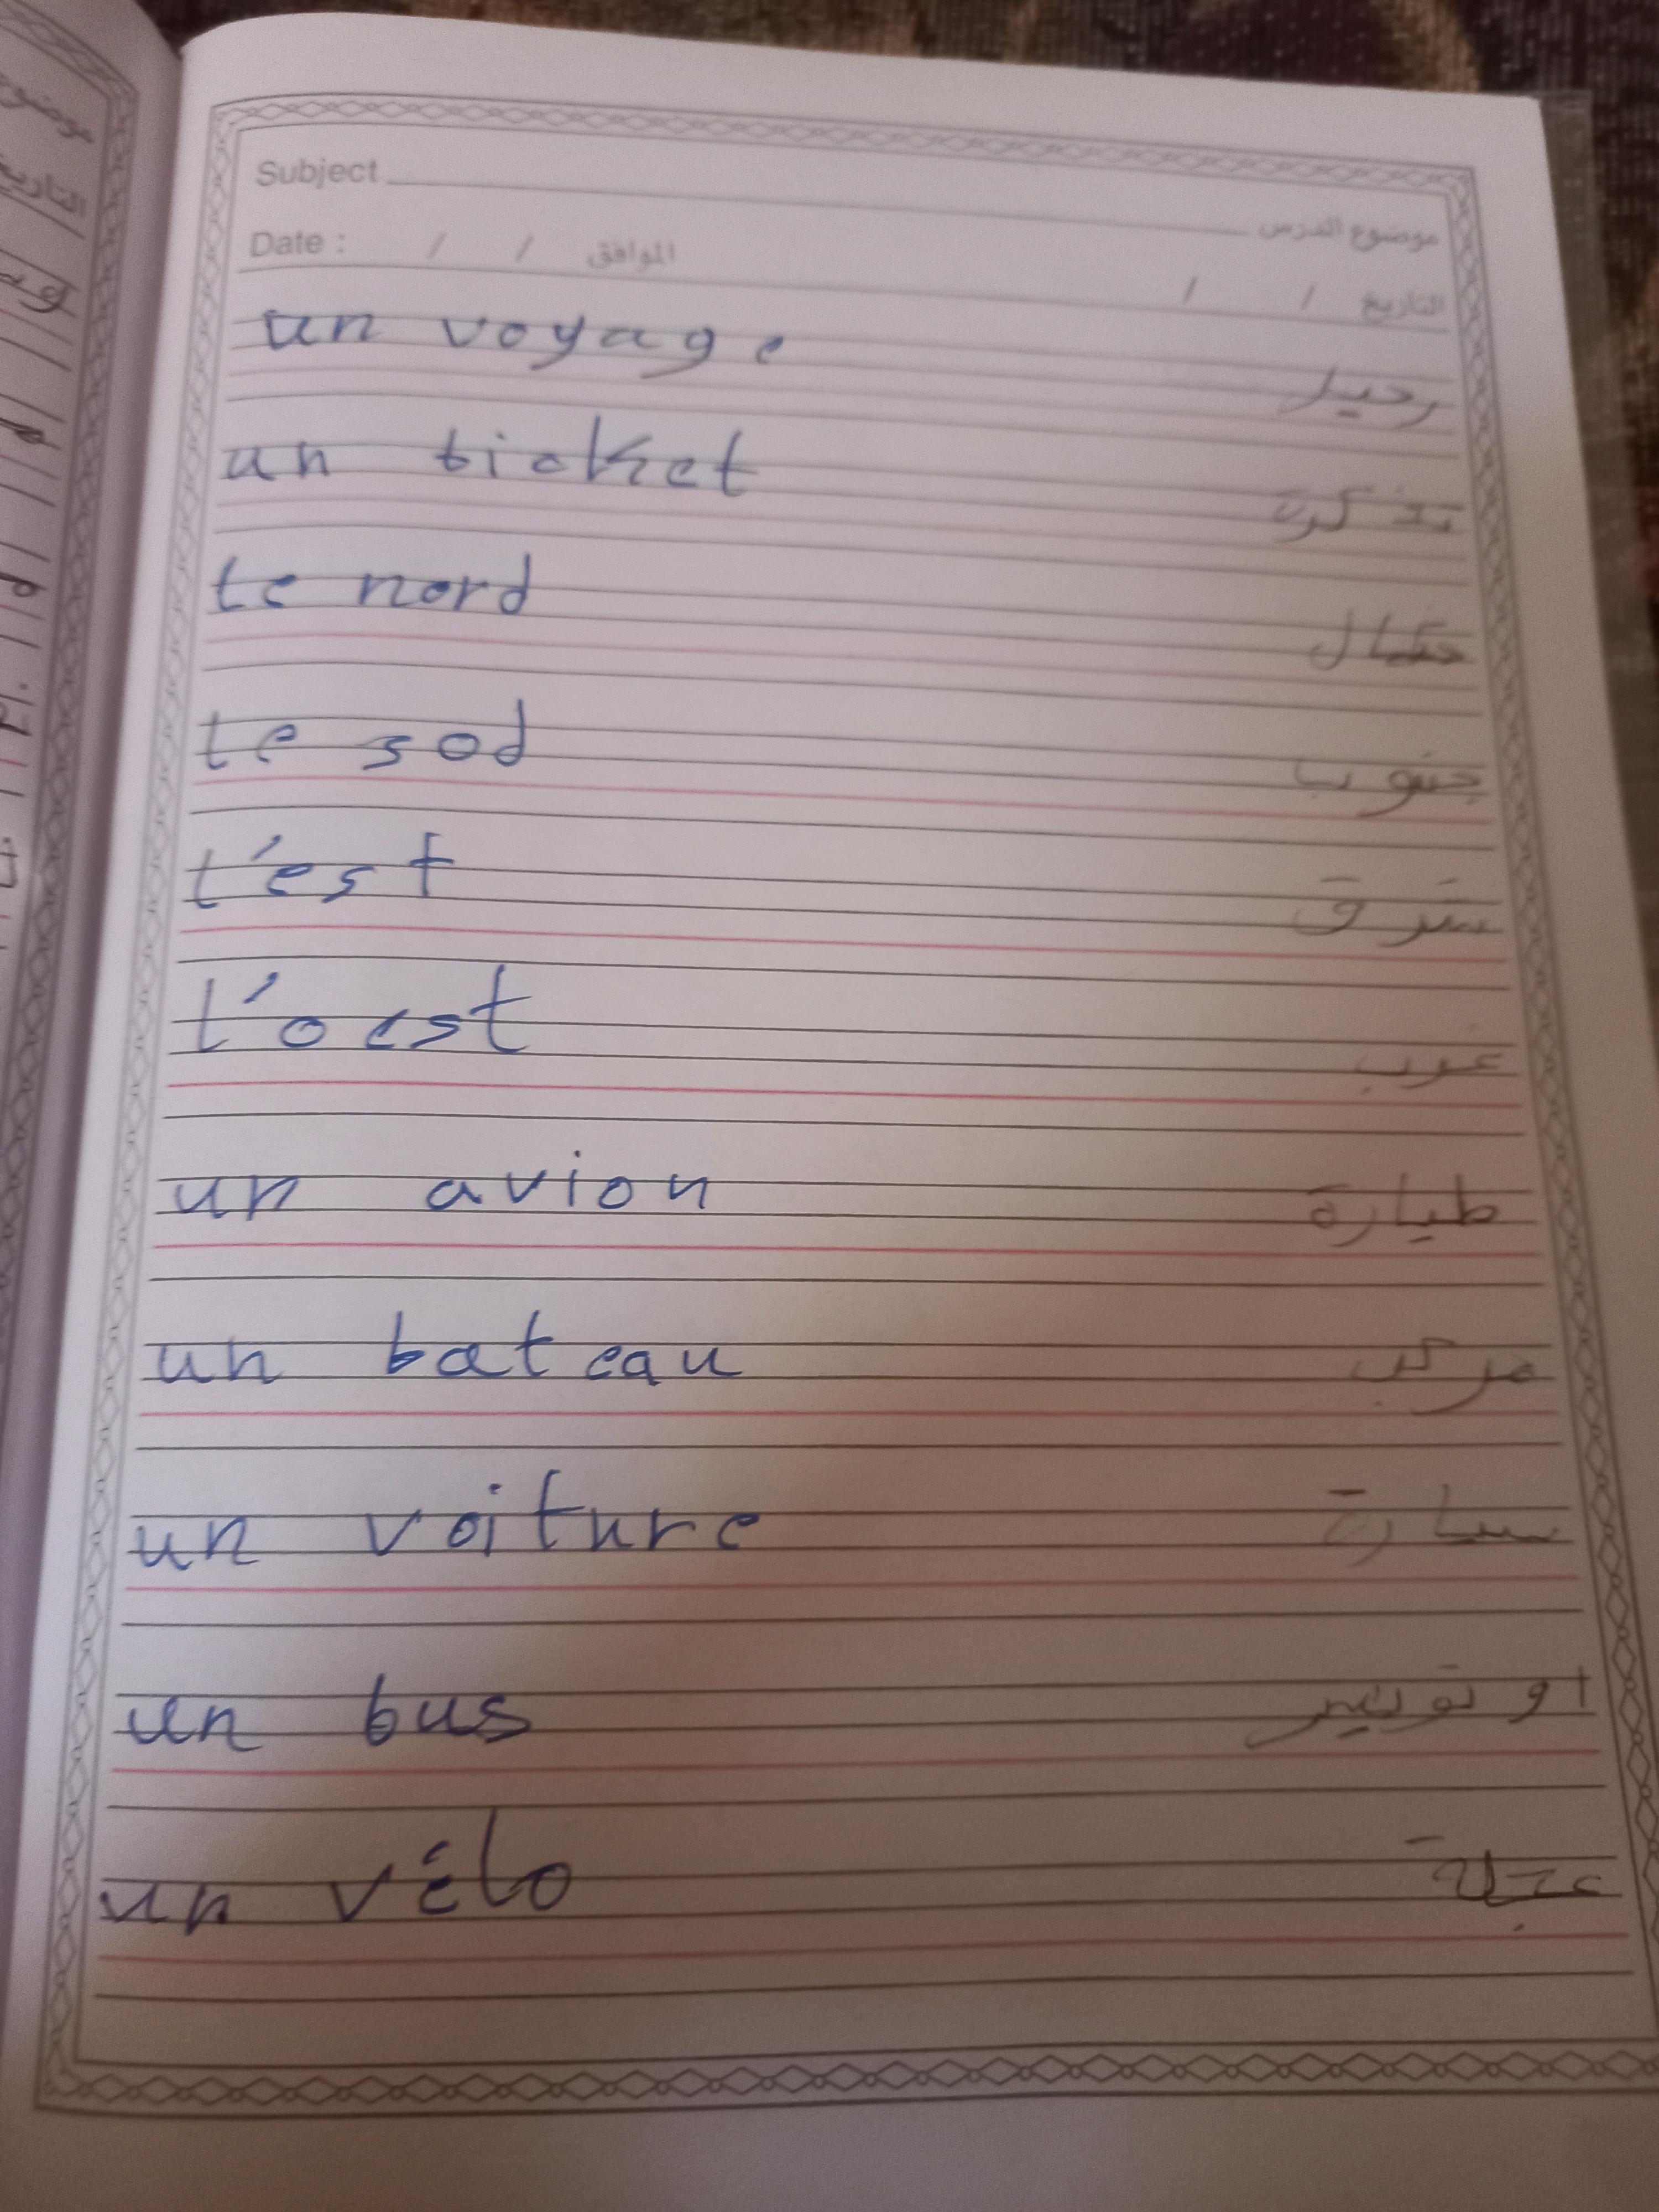 Subject موضوع الدرس
Date : / / الموافق / / التاريخ
un voyage رحيل
un ticket تذكرة
te nord
te sod جنوب
t'est شرق
l'oest غرب
un avion طيارة
un bateau مركب
un voiture سيارة
un bus اوتوبيس
un vélo عجلة